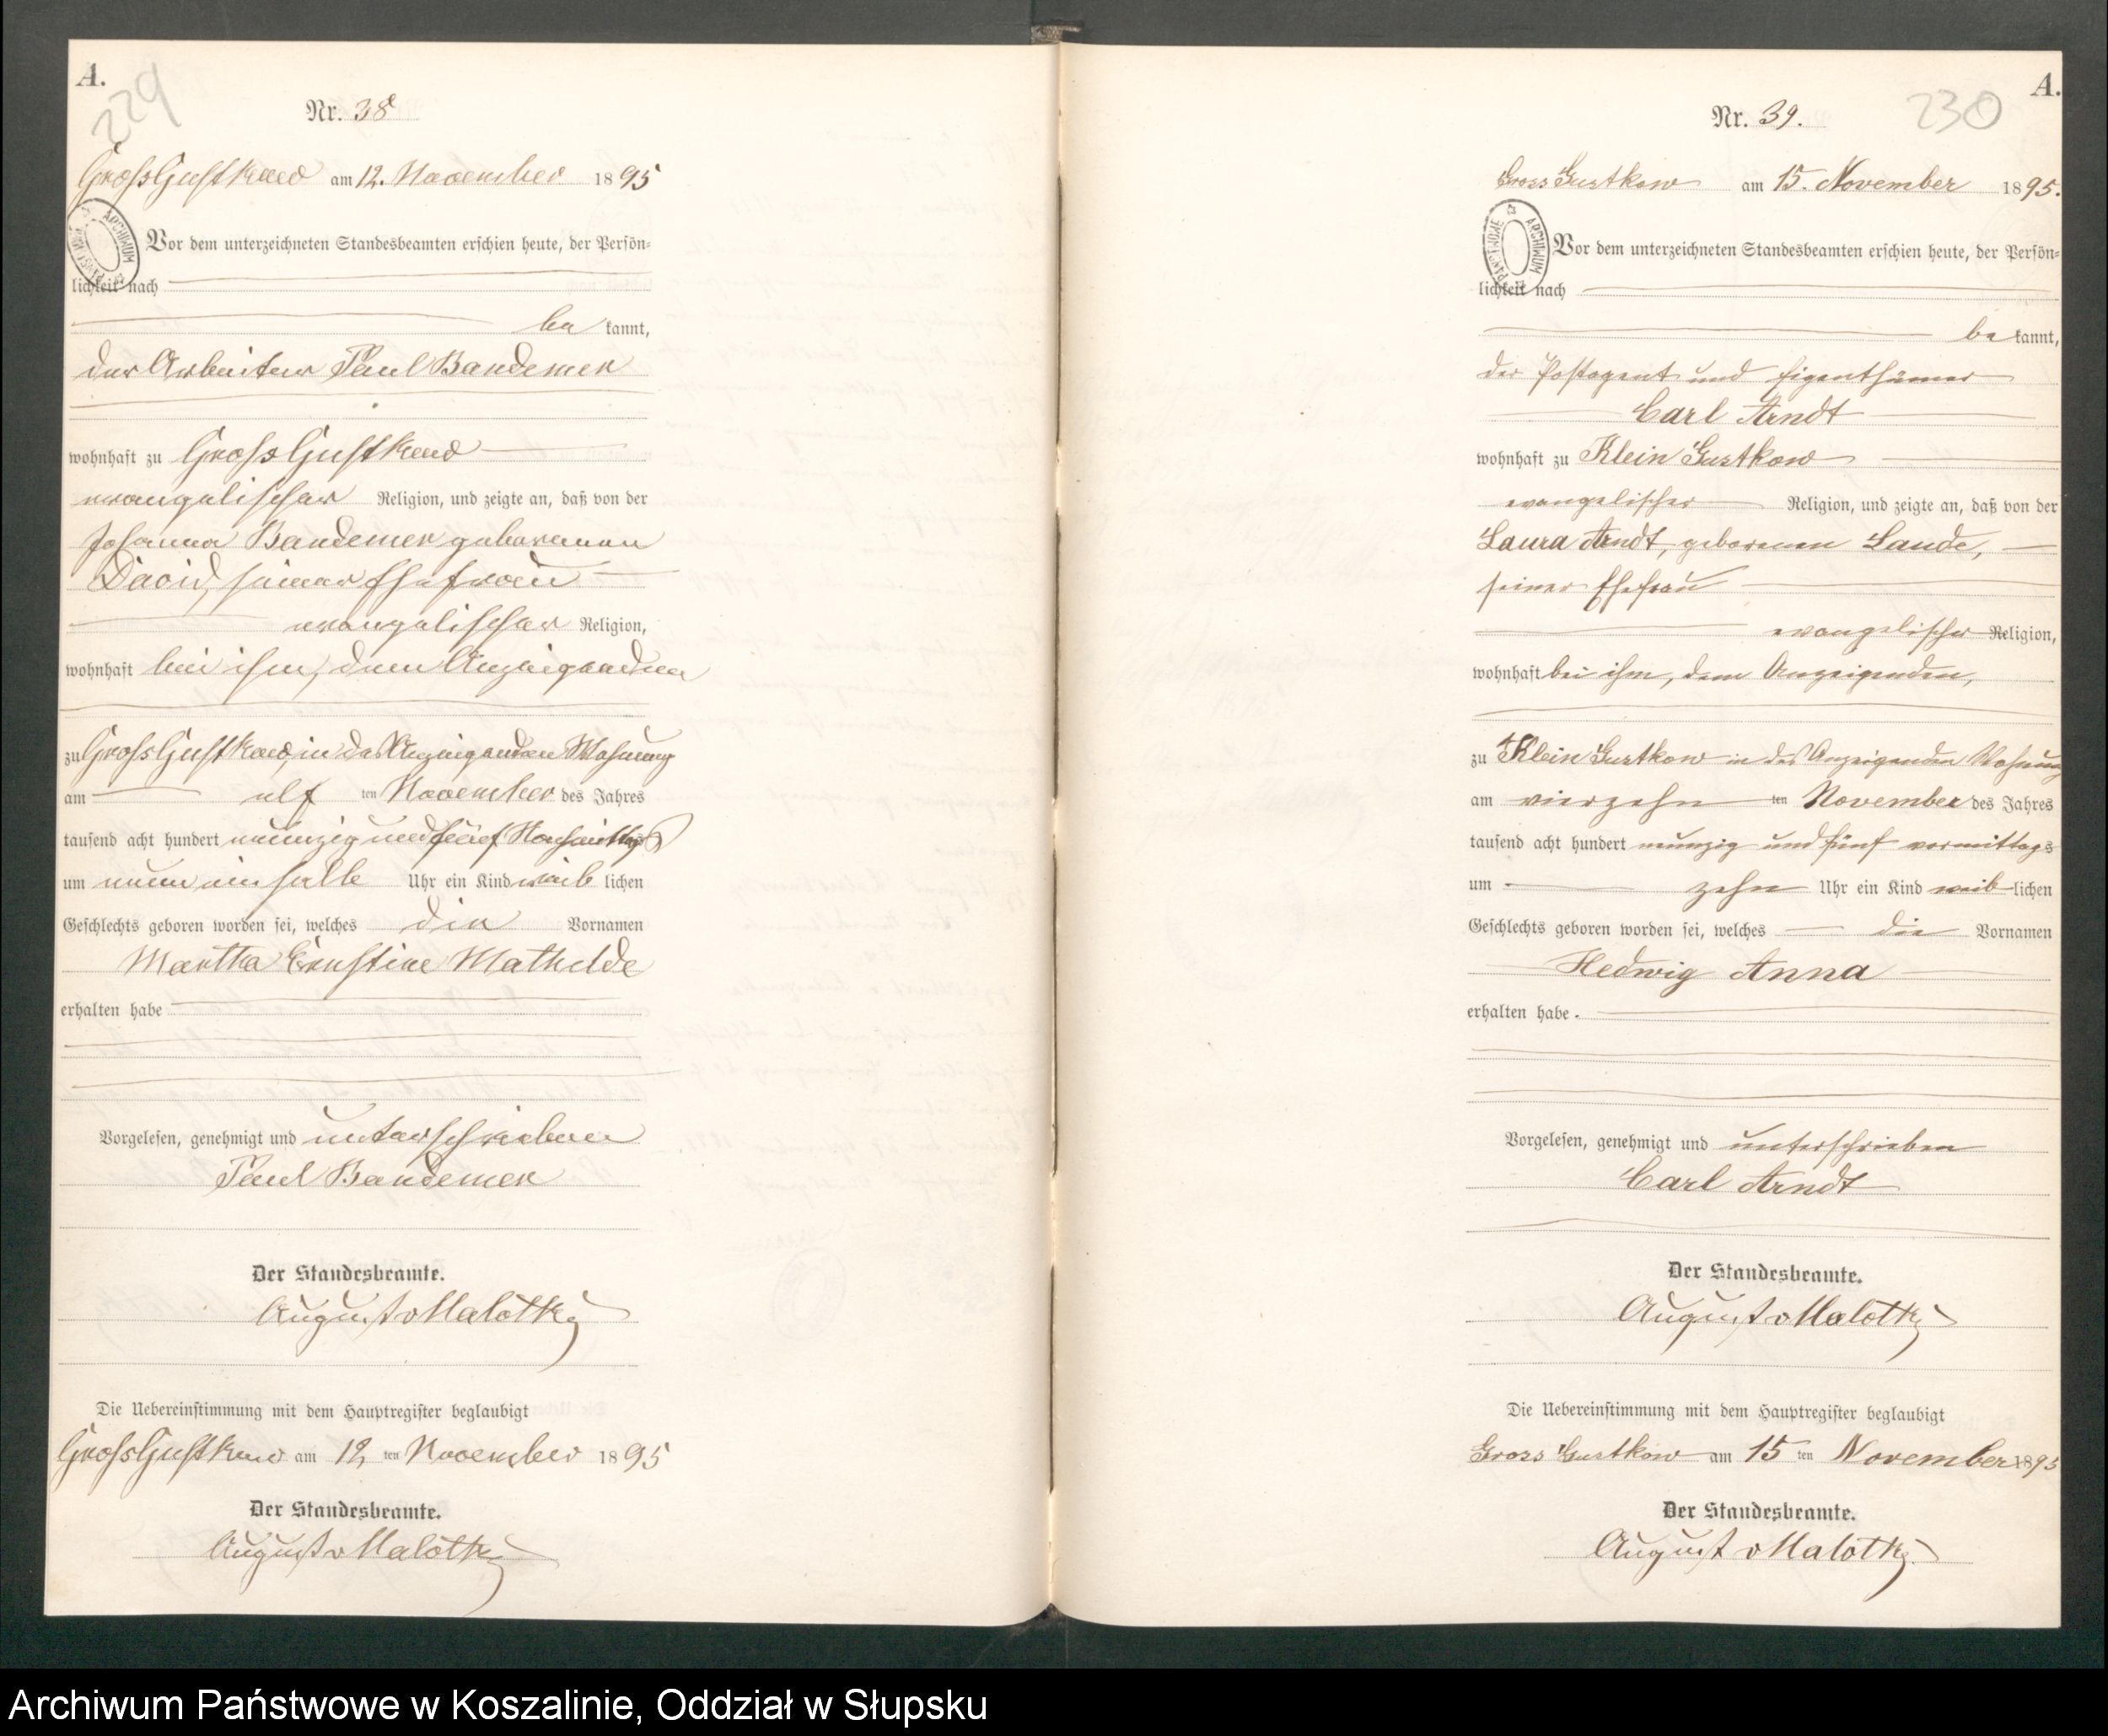 A.
229
Nr. 38
Gross Gustkow am 12. November 1895
ARCHIWUM PAŃSTWOWE
Vor dem unterzeichneten Standesbeamten erschien heute, der Persön-
lichkeit nach
be kannt,
der Arbeiter Paul Bandemer
wohnhaft zu Gross Gustkow
evangelischer Religion, und zeigte an, daß von der
Johanna Bandemer geborenen
David, seiner Ehefrau
evangelischer Religion,
wohnhaft bei ihm, dem Anzeigenden
zu Gross Gustkow, in des Anzeigenden Wohnung
am elf ten November des Jahres
tausend acht hundert neunzig und fünf Nachmittags
um neun ein halb Uhr ein Kind weib lichen
Geschlechts geboren worden sei, welches die Vornamen
Martha Ernstine Mathilde
erhalten habe
Vorgelesen, genehmigt und unterschrieben
Paul Bandemer
Der Standesbeamte.
August v Malottky
Die Uebereinstimmung mit dem Hauptregister beglaubigt
Gross Gustkow am 12 ten November 1895
Der Standesbeamte.
August v Malottky
A.
230
Nr. 39.
Gross Gustkow am 15. November 1895.
ARCHIWUM PAŃSTWOWE
Vor dem unterzeichneten Standesbeamten erschien heute, der Persön-
lichkeit nach
be kannt,
der Postagent und Eigenthümer
Carl Arndt
wohnhaft zu Klein Gustkow
evangelischer Religion, und zeigte an, daß von der
Laura Arndt, geborenen Lande,
seiner Ehefrau
evangelischer Religion,
wohnhaft bei ihm, dem Anzeigenden,
zu Klein Gustkow in des Anzeigenden Wohnung
am vierzehn ten November des Jahres
tausend acht hundert neunzig und fünf vormittags
um zehn Uhr ein Kind weib lichen
Geschlechts geboren worden sei, welches die Vornamen
Hedwig Anna
erhalten habe.
Vorgelesen, genehmigt und unterschrieben
Carl Arndt
Der Standesbeamte.
August v Malottky
Die Uebereinstimmung mit dem Hauptregister beglaubigt
Gross Gustkow am 15 ten November 1895
Der Standesbeamte.
August v Malottky
Archiwum Państwowe w Koszalinie, Oddział w Słupsku